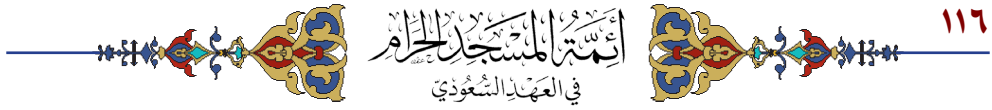 ١١٦
أَئِمَّةُ المَسْجِدِ الحَرَامِ
في العَهْدِ السُّعُوْدِيّ